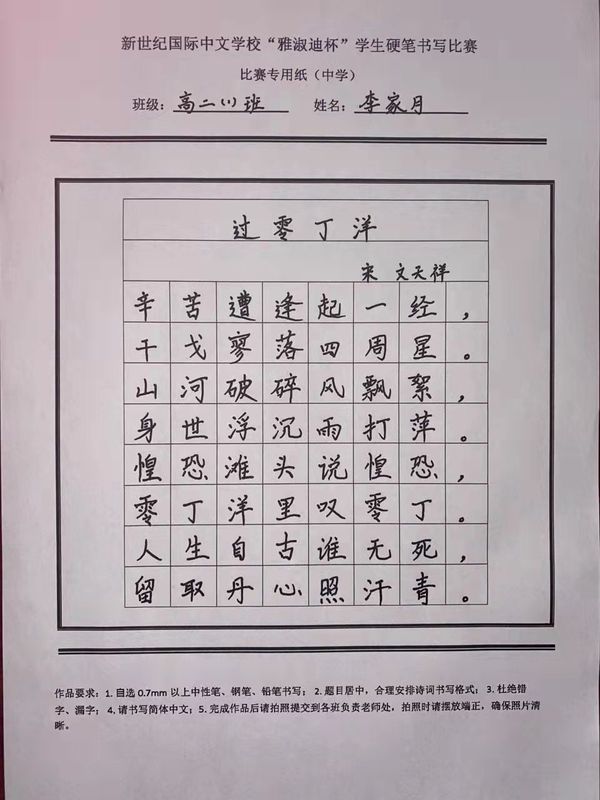 新世纪国际中文学校“雅淑迪杯”学生硬笔书写比赛
比赛专用纸（中学）
班级：高二（1）班 姓名：李家月
过零丁洋
宋 文天祥
辛苦遭逢起一经，
干戈寥落四周星。
山河破碎风飘絮，
身世浮沉雨打萍。
惶恐滩头说惶恐，
零丁洋里叹零丁。
人生自古谁无死，
留取丹心照汗青。
作品要求：1. 自选 0.7mm 以上中性笔、钢笔、铅笔书写； 2. 题目居中，合理安排诗词书写格式； 3. 杜绝错
字、漏字； 4. 请书写简体中文；5. 完成作品后请拍照提交到各班负责老师处，拍照时请摆放端正，确保照片清
晰。